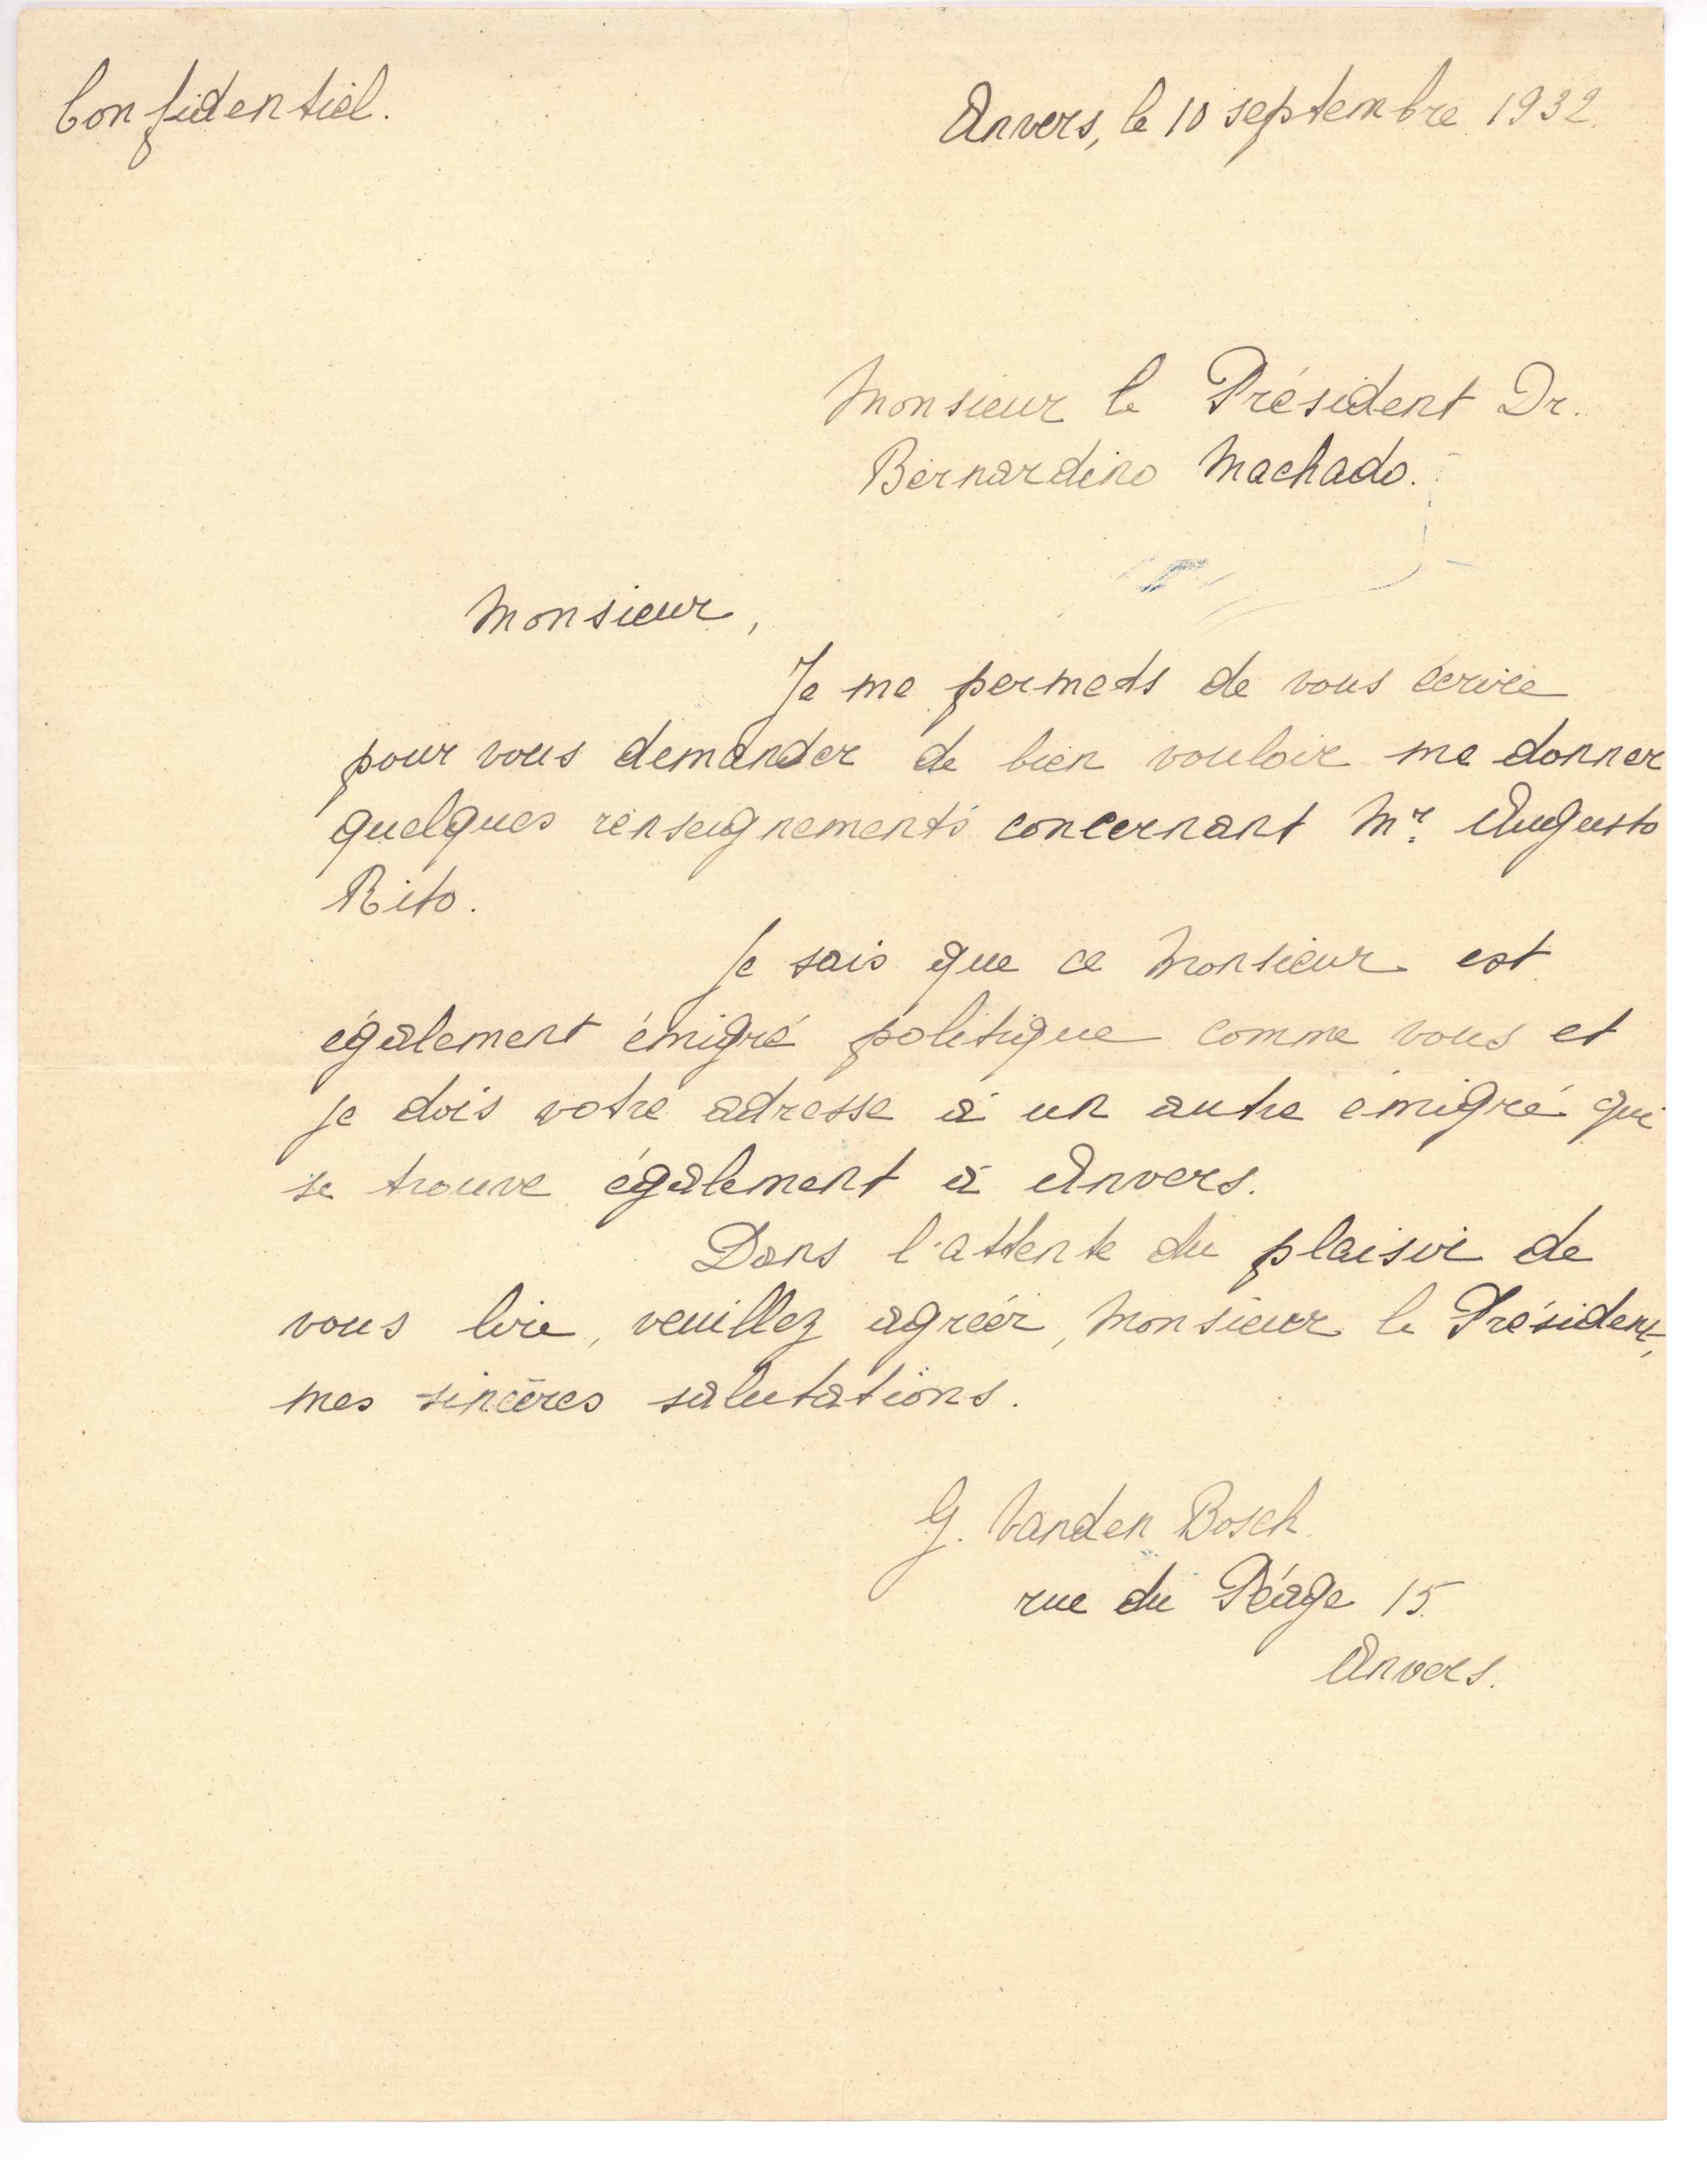 Confidentiel.
Anvers, le 10 septembre 1932.
Monsieur le Président Dr.
Bernardino Machado.
Monsieur,
Je me permets de vous écrire
pour vous demander de bien vouloir me donner
quelques renseignements concernant Mr. Augusto
Rito.
Je sais que ce Monsieur est
également émigré politique comme vous et
je dois votre adresse à un autre émigré qui
se trouve également à Anvers.
Dans l'attente du plaisir de
vous lire, veuillez agréer, Monsieur le Président,
mes sincères salutations.
G. Vanden Bosch.
rue du Péage 15.
Anvers.